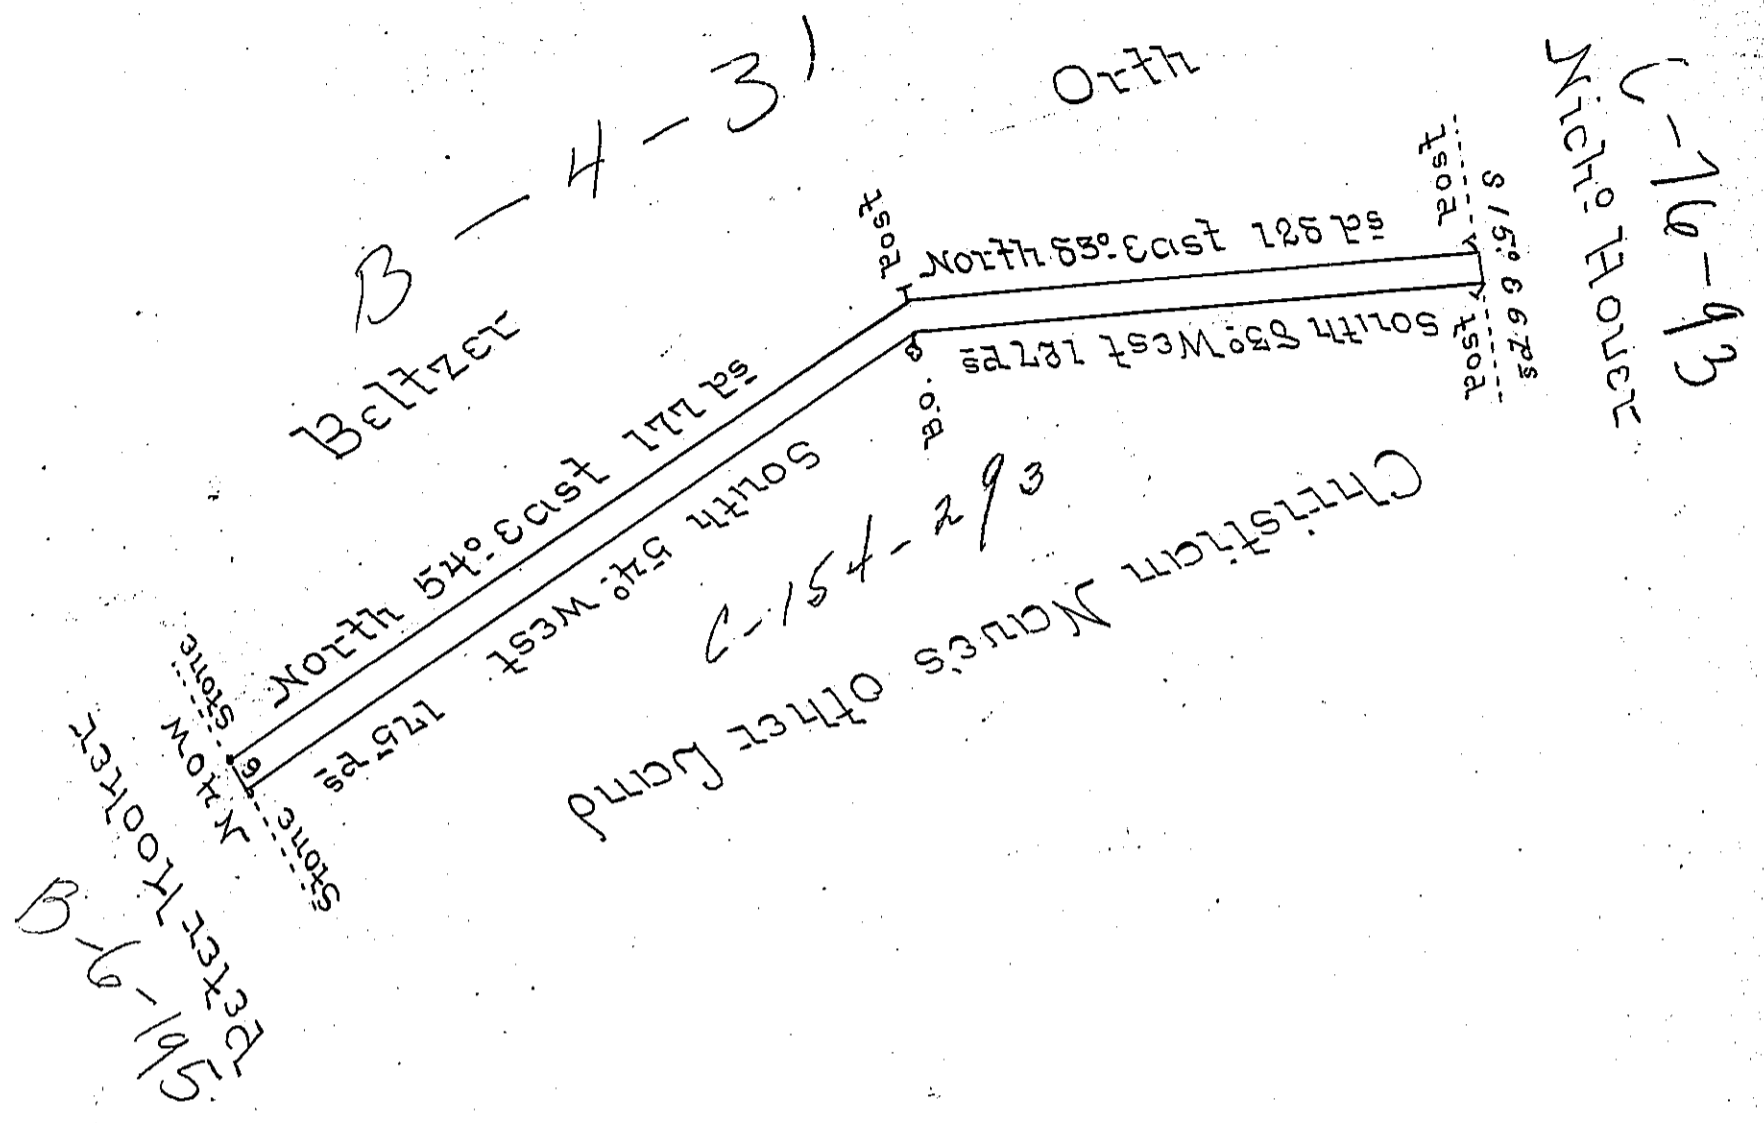 B-4-31
Orth
C-76-93
Nich.o Houer
Beltzer
Post
Post
North 85° East 128 Ps
S 15° E 6 Ps
South 85° West 127 Ps
Post
B.O.
North 54° East 177 Ps
South 54° West 175 Ps
C-154-293
Christian Nave's Other Land
Stone
N 40 W
6
Stone
Peter Kooker
B-6-195